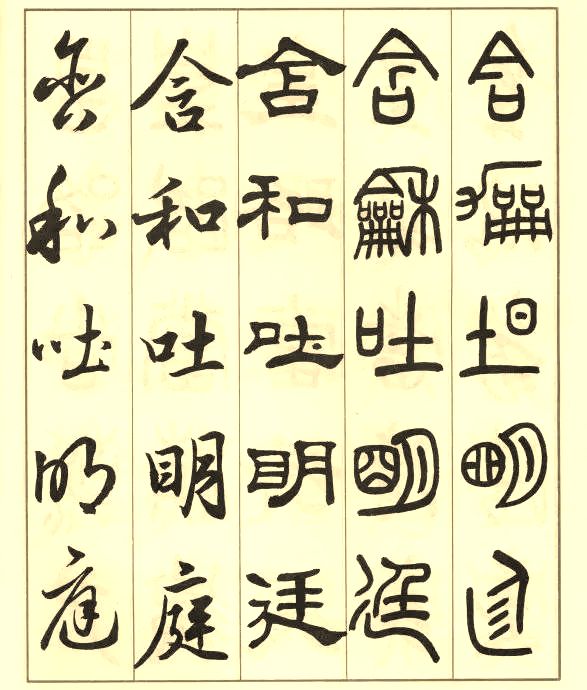 含吐明廷
含龢吐朙廷
含和吐明廷
含和吐明庭
含和吐明庭